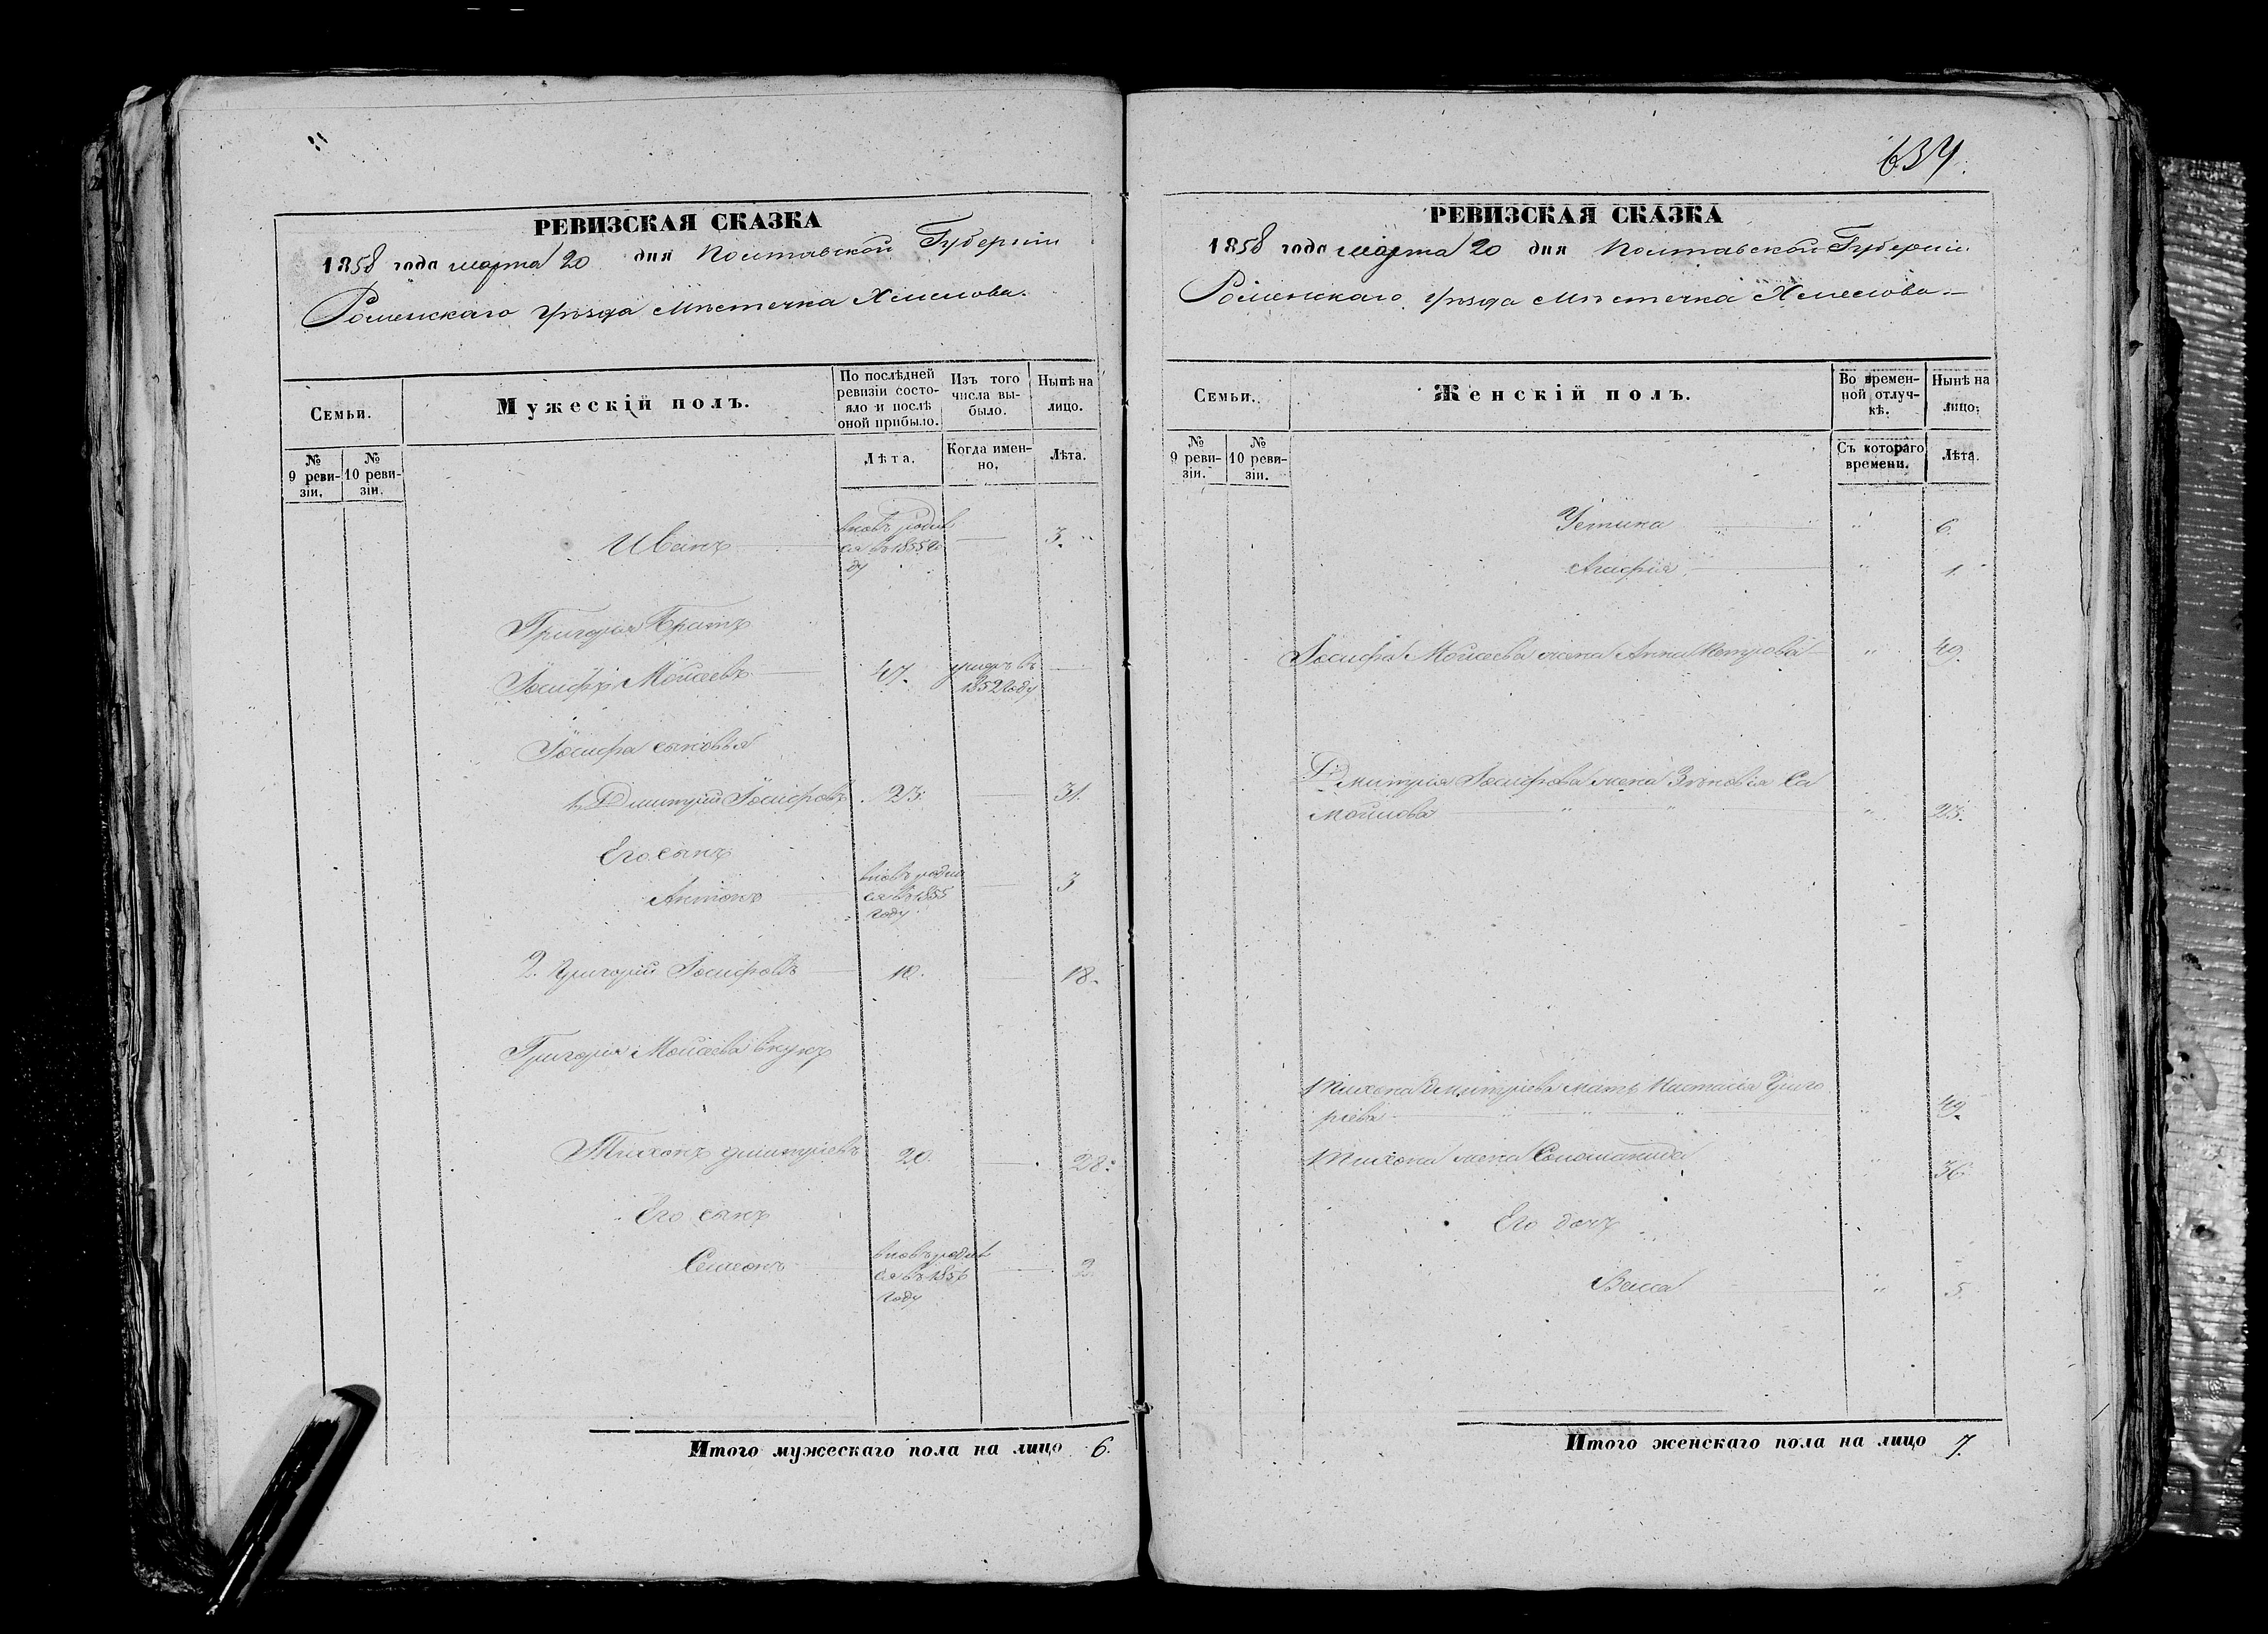 РЕВИЗСКАЯ СКАЗКА
1858 года марта 20 дня Полтавской Губерніи
Роменскаго уѣзда мѣстечка Хмелова.
Семьи.
Мужескій полъ.
По послѣдней ревизіи состояло и послѣ оной прибыло.
Изъ того числа выбыло.
Нынѣ на лицо.
№ 9 ревизіи.
№ 10 ревизіи.
Лѣта.
Когда именно.
Лѣта.
Иванъ
вновь родився въ 1855 году
3.
Григорія Братъ
Іосифъ Моисеевъ
47.
умеръ въ 1852 году
Іосифа сыновья
1, Дмитрій Іосифовъ
23.
31.
Его сынъ
Антонъ
вновь родился въ 1855 году
3
2. Григорій Іосифовъ
10.
18.
Григорія Моисеева внукъ
Тихонъ Дмитріевъ
20.
28.
Его сынъ
Семенъ
вновь родився въ 1856 году
2.
Итого мужескаго пола на лицо 6.
634.
РЕВИЗСКАЯ СКАЗКА
1858 года марта 20 дня Полтавской Губерніи
Роменскаго уѣзда мѣстечка Хмелова.
Семьи.
Женскій полъ.
Во временной отлучкѣ.
Нынѣ на лицо.
№ 9 ревизіи.
№ 10 ревизіи.
Съ котораго времени.
Лѣта.
Устина " 6.
Агафія " 1.
Іосифа Моисеева жена Анна Петрова " 49.
Дмитрія Іосифова жена Зѣновія Са
мойлова " 23.
Тихона Дмитріева мать Настасія Григо
рьева " 49.
Тихона жена Соломанида " 36.
Его дочь
Васса " 5.
Итого женскаго пола на лицо 7.